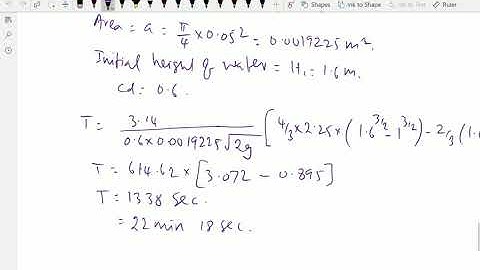 Shapes Ink to Shape Ruler
Area = a = π/4 × 0.05² = 0.0019225 m².
Initial height of water = H₁ = 1.6 m.
Cd = 0.6.
T = 3.14 / (0.6 × 0.0019225 √2g) [4/3 × 2.25 × (1.6^3/2 - 1^3/2) - 2/5 (1.
T = 614.62 × [3.072 - 0.895]
T = 1338 sec.
= 22 min 18 sec.